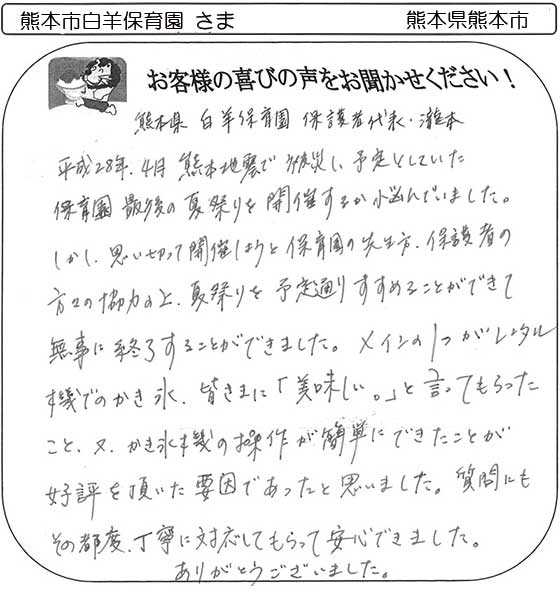 熊本市白羊保育園 さま 熊本県熊本市
お客様の喜びの声をお聞かせください！
熊本県 白羊保育園 保護者代表・瀧本
平成28年.4月 熊本地震で被災し、予定としていた
保育園最後の夏祭りを開催するか悩んでいました。
しかし、思い切って開催しようと保育園の先生方、保護者の
方々の協力の上、夏祭りを予定通りすすめることができて
無事に終了することができました。メインの1つがレンタル
機でのかき氷、皆さまに「美味しい。」と言ってもらった
こと、又、かき氷機の操作が簡単にできたことが
好評を頂いた要因であったと思いました。質問にも
その都度、丁寧に対応してもらって安心できました。
ありがとうございました。